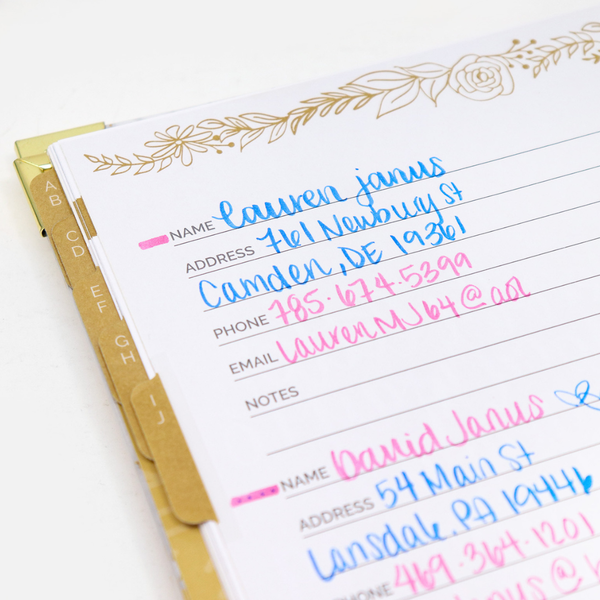 A
B
C
D
E
F
G
H
I
J
NAME Lauren Janus
ADDRESS 761 Newbury St
Camden, DE 19361
PHONE 785.674.5399
EMAIL LaurenMJ64@aol
NOTES
NAME David Janus
ADDRESS 54 Main St
Lansdale, PA 19446
PHONE 469.364.1201